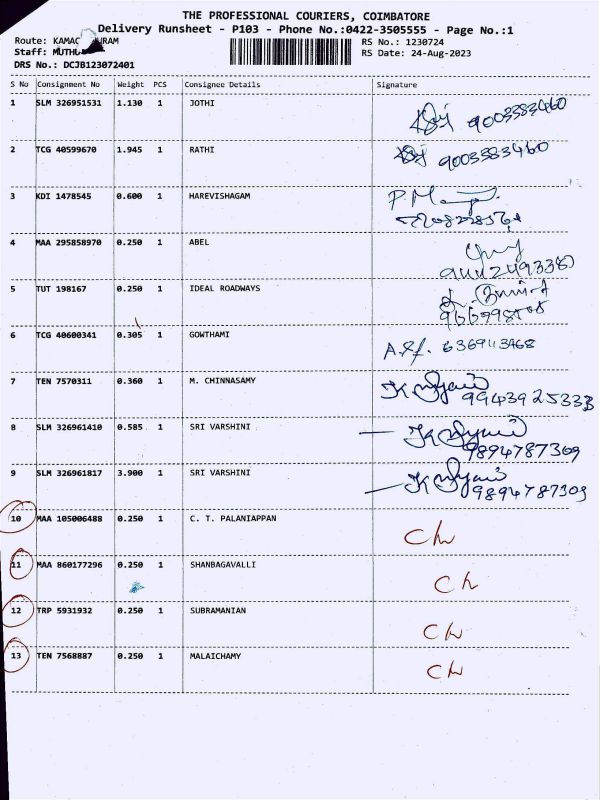 THE PROFESSIONAL COURIERS, COIMBATORE
Delivery Runsheet - P103 - Phone No.:0422-3505555 - Page No.:1
Route: KAMAC RAM
RS No.: 1230724
Staff: MUTHU
RS Date: 24-Aug-2023
DRS No.: DCJB123072401
S No Consignment No Weight PCS Consignee Details Signature
1 SLM 326951531 1.130 1 JOTHI 9003583460
2 TCG 40599670 1.945 1 RATHI 9003583460
3 KDI 1478545 0.600 1 HAREVISHAGAM
4 MAA 295858970 0.250 1 ABEL
5 TUT 198167 0.250 1 IDEAL ROADWAYS
6 TCG 40600341 0.305 1 GOWTHAMI 6369113468
7 TEN 7570311 0.360 1 M. CHINNASAMY 9943925333
8 SLM 326961410 0.585 1 SRI VARSHINI 9894787309
9 SLM 326961817 3.900 1 SRI VARSHINI 9894787309
10 MAA 105006488 0.250 1 C. T. PALANIAPPAN
11 MAA 860177296 0.250 1 SHANBAGAVALLI
12 TRP 5931932 0.250 1 SUBRAMANIAN
13 TEN 7568887 0.250 1 MALAICHAMY